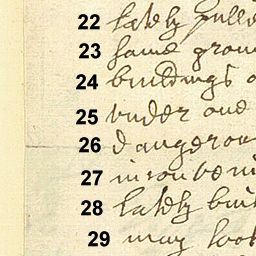 22 lately pulle
23 same groun
24 buildings o
25 vnder one
26 dangerou
27 inconveni
28 lately buil
29 may look